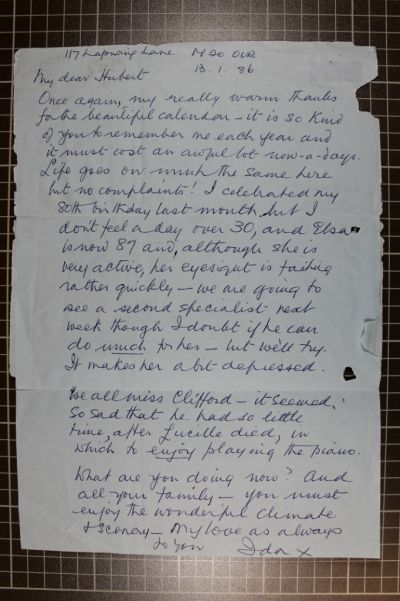 117 Lapwing Lane M20 0UR
13.1.86
My dear Hubert
Once again, my really warm thanks
for the beautiful calendar – it is so kind
of you to remember me each year and
it must cost an awful lot now-a-days.
Life goes on much the same here
but no complaints! I celebrated my
80th birthday last month but I
don't feel a day over 30, and Elsa
is now 87 and, although she is
very active, her eyesight is failing
rather quickly – we are going to
see a second specialist next
week though I doubt if he can
do much for her – but we'll try.
It makes her a bit depressed.
We all miss Clifford – it seemed
so sad that he had so little
time, after Lucille died, in
which to enjoy playing the piano.
What are you doing now? And
all your family – you must
enjoy the wonderful climate
& scenery – My love as always
to you Ida x